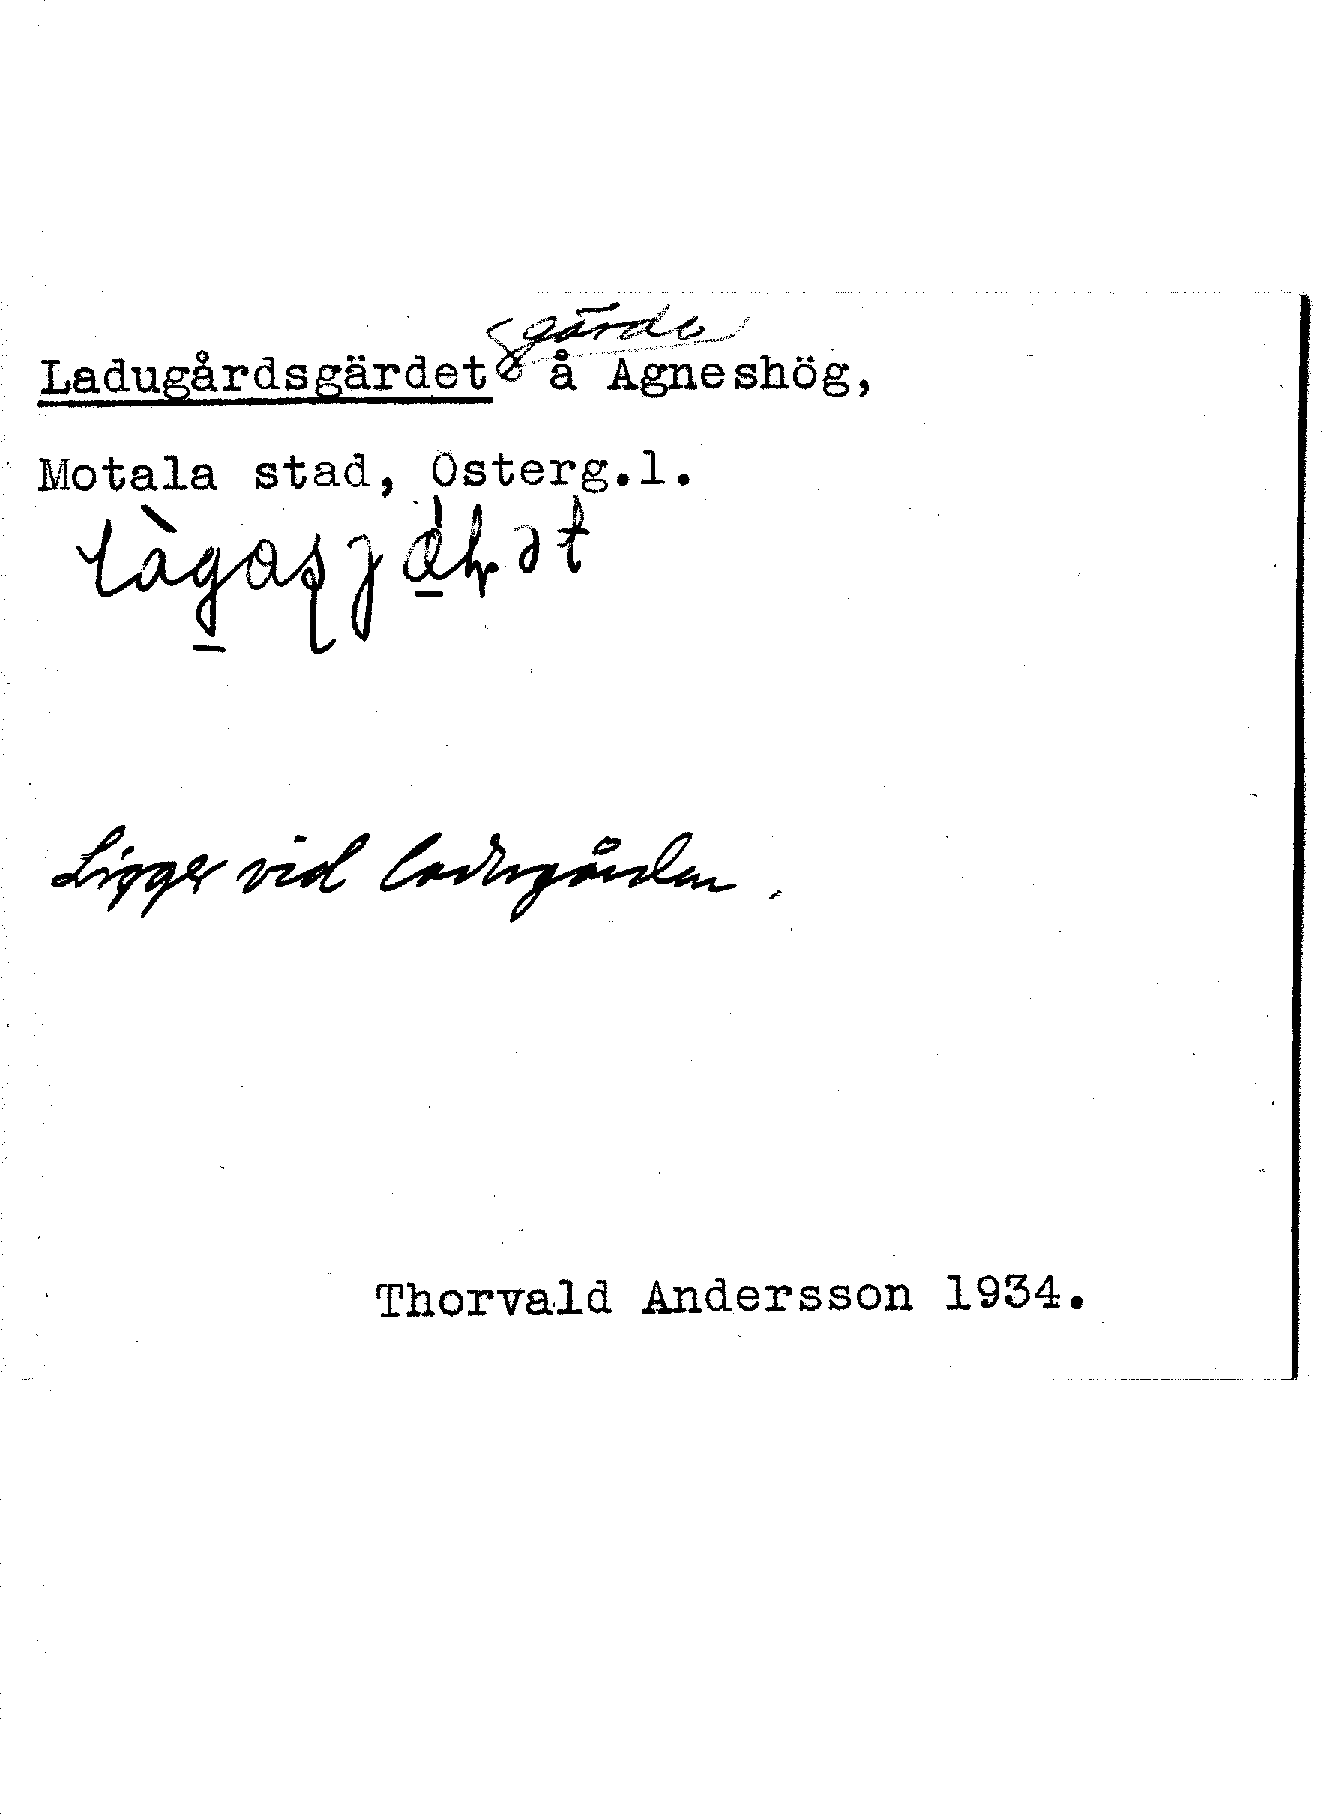 Ladugårdsgärdet gärde å Agneshög,
Motala stad, Österg.l.
Ligger vid ladugården.
Thorvald Andersson 1934.